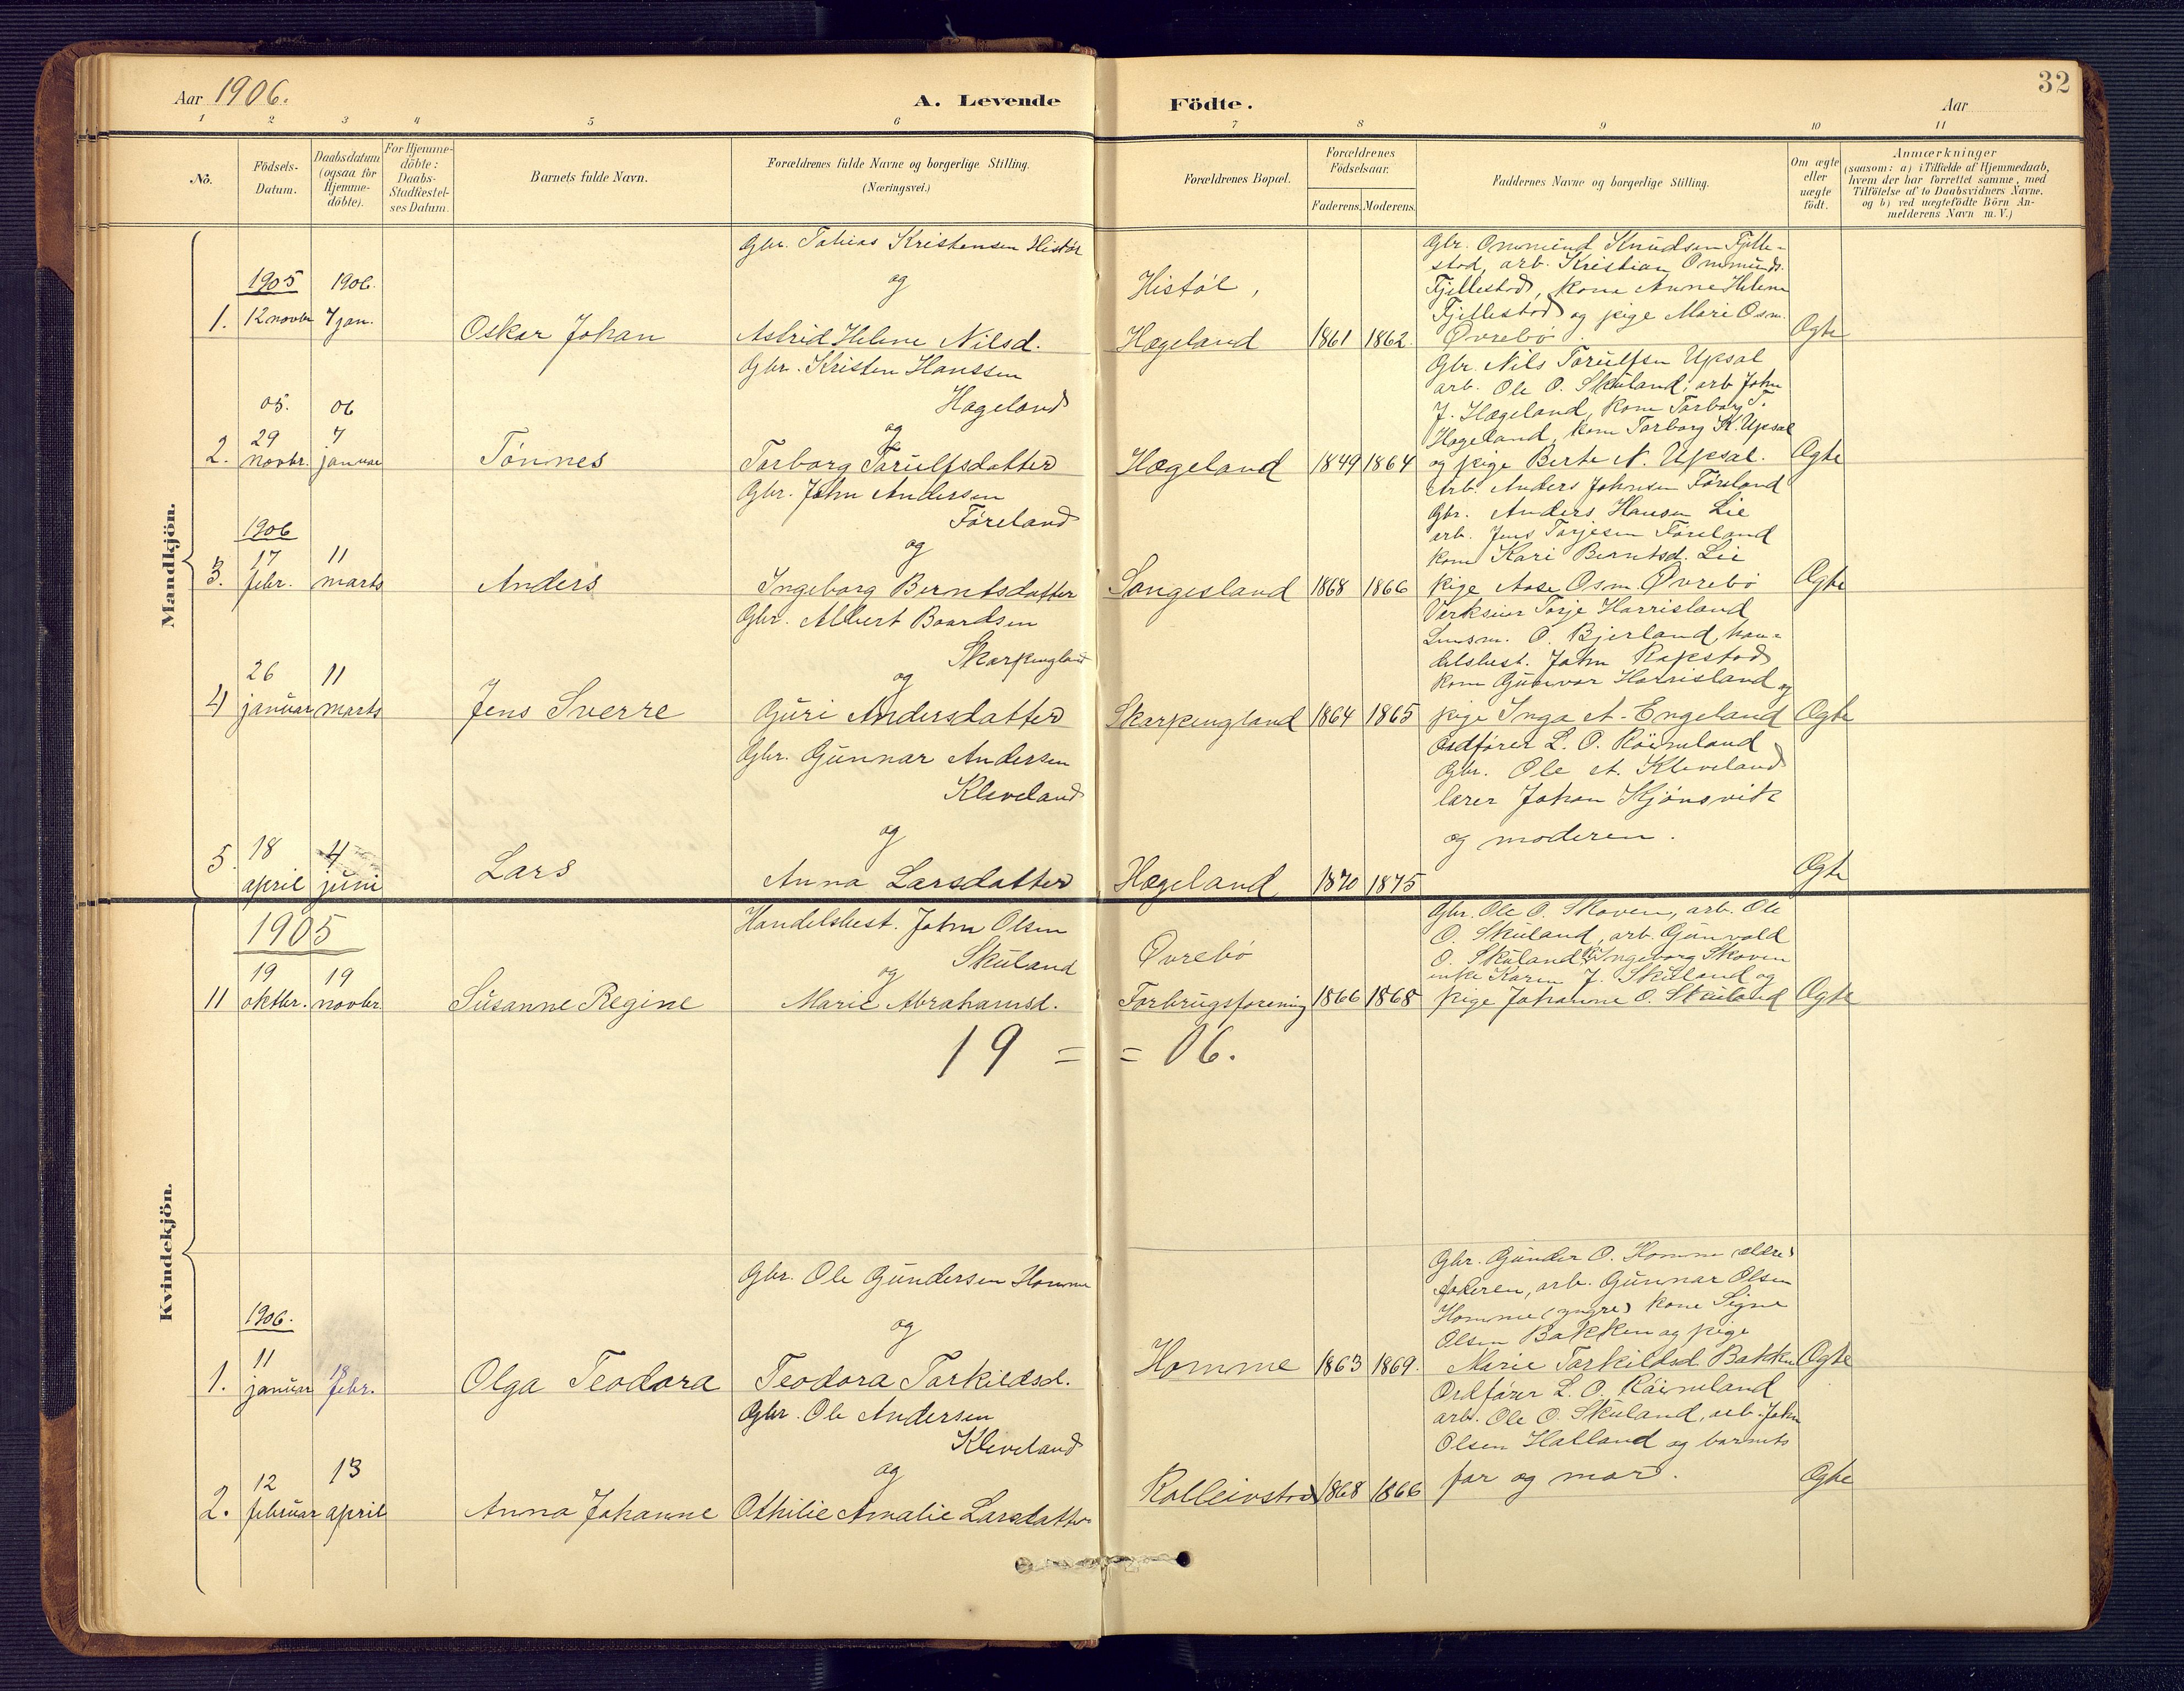 32
Aar 1906.
A. Levende Födte.
Aar
1 2 3 4 5 6 7 8 9 10 11
No.
Födsels-Datum.
Daabsdatum (ogsaa for Hjemme-döbte).
For Hjemme-döbte: Daabs-Stadfæstel-ses Datum.
Barnets fulde Navn.
Forældrenes fulde Navne og borgerlige Stilling.
(Næringsvei.)
Forældrenes Bopæl.
Forældrenes Födselsaar.
Faderens. Moderens.
Faddernes Navne og borgerlige Stilling.
Om ægte eller uægte födt.
Anmærkninger
(saasom: a) i Tilfælde af Hjemmedaab,
hvem der har forrettet samme, med
Tilföielse af to Daabsvidners Navne,
og b) ved uægtefödte Börn An-
melderens Navn m. V.)
Mandkjön.
1. 1905 12 novbr 1906. 7 jan.
Oskar Johan
Gbr. Tobias Kristensen Histöl
og
Astrid Helene Nilsd.
Histöl,
Hægeland
1861 1862.
Gbr. Ommund Knudsen Fjelle-
stad, arb. Kristian Ommunds.
Fjellestad, kone Anne Helene
Fjellestad og pige Mari Osm.
Øvrebö.
Ægte
2. 05. 29 novbr. 06 7 januar
Tönnes
Gbr. Kristen Hanssen
Hægeland
og
Torborg Torulfsdatter
Hægeland
1849 1864
Gbr. Nils Torulfsen Upsal
arb. Ole O. Skuland, arb John
J. Hægeland, kone Torborg T.
Hægeland, kone Torborg K. Upsal
og pige Berte N. Upsal.
Ægte
3. 1906 17 febr. 11 marts
Anders
Gbr. John Andersen
Föreland
og
Ingeborg Berntsdatter
Songesland
1868 1866
Arb. Anders Johnsen Föreland
Gbr. Anders Hansen Lie
arb. Jens Torjesen Föreland
kone Kari Berntsd. Lie
pige Aase Osm. Øvrebö
Ægte
4 26 januar 11 marts
Jens Sverre
Gbr. Albert Baardsen
Skarpengland
og
Guri Andersdatter
Skarpengland
1864 1865
Verkseier Torje Harrisland
Lensm. O. Bjerland, han-
delsbest. John Rapstad
kone Gunvor Harrisland og
pige Inga A. Engeland
Ægte
5. 18 april 4 juni
Lars
Gbr. Gunnar Andersen
Kleveland
og
Anna Larsdatter
Hægeland
1870 1875
Ordförer L. O. Röinesland
Gbr. Ole A. Kleveland
lærer Johan Kjönsvik
og moderen.
Ægte
Kvindekjön.
1905
11 19 oktbr. 19 novbr.
Susanne Regine
Handelsbest. John Olsen
Skuland
og
Marie Abrahamsd.
Øvrebö
Forbrugsforening
1866 1868
Gbr. Ole O. Skoven, arb. Ole
O. Skuland, arb. Gunvald
O. Skuland, Ingeborg Skoven
enke Karen J. Skuland og
pige Johanne O. Skuland
Ægte
19 = = 06.
1. 1906. 11 januar 18 febr.
Olga Teodora
Gbr. Ole Gundersen Homme
og
Teodora Torkildsd.
Homme
1863 1869.
Gbr. Gunder O. Homme (ældre)
faderen, arb. Gunnar Olsen
Homme (yngre) kone Signe
Olsen Bakken og pige
Marie Torkildsd. Bakken
Ægte
2. 12 februar 13 april
Anna Johanne
Gbr. Ole Andersen
Kleveland
og
Othilie Amalie Larsdatter
Kolleivstad
1868 1866
Ordförer L. O. Röinesland
arb. Ole O. Skuland, arb. John
Olsen Halland og barnets
far og mor.
Ægte